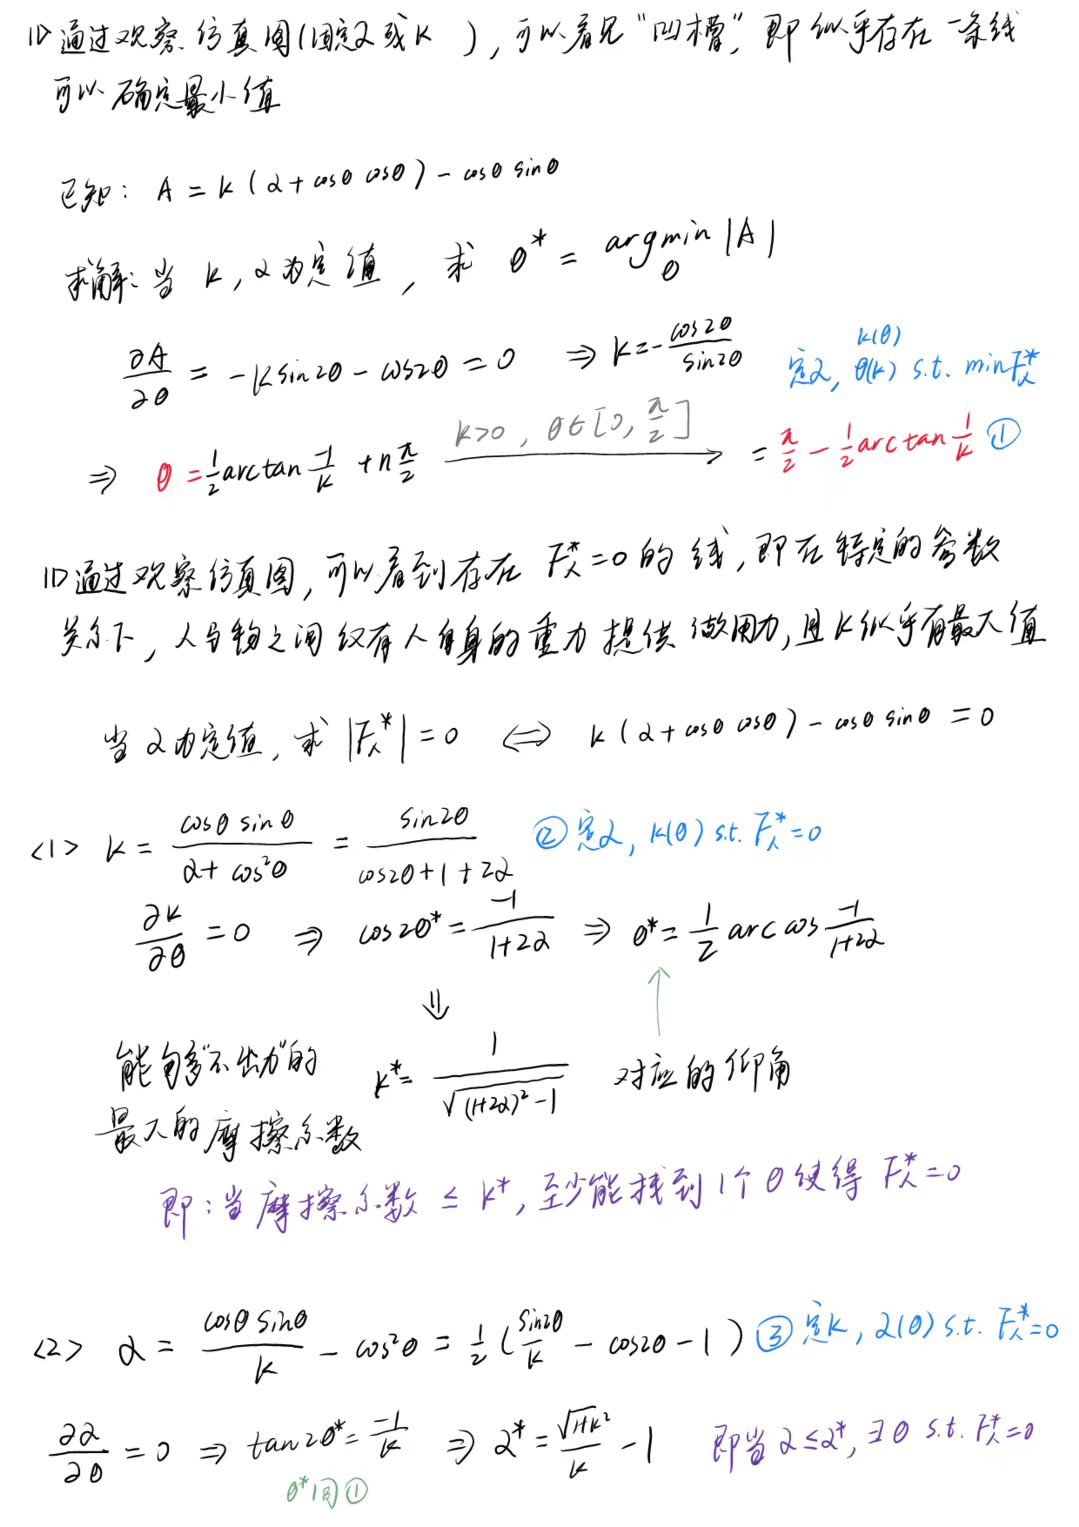 1) 通过观察仿真图(固定α或k ), 可以看见"凹槽", 即似乎存在一条线
可以确定最小值
已知: A = k(α+cosθ cosθ) - cosθ sinθ
求解: 当 k, α为定值, 求 θ* = argmin_θ |A|
∂A/∂θ = -k sin2θ - cos2θ = 0 ⇒ k = -cos2θ/sin2θ 定α, k(θ) θ(k) s.t. min F人*
⇒ θ = 1/2 arctan -1/k + n π/2 k>0, θ∈[0, π/2] → = π/2 - 1/2 arctan 1/k ①
1) 通过观察仿真图, 可以看到存在 F人*=0 的线, 即在特定的参数
关系下, 人与物之间仅有人自身的重力提供做用力, 且k似乎有最大值
当α为定值, 求 |F人*| = 0 ⇔ k(α+cosθ cosθ) - cosθ sinθ = 0
<1> k = cosθ sinθ/(α+cos²θ) = sin2θ/(cos2θ+1+2α) ② 定α, k(θ) s.t. F人*=0
∂k/∂θ = 0 ⇒ cos2θ* = -1/(1+2α) ⇒ θ* = 1/2 arccos -1/(1+2α)
⇓ ↑
能够"不出力"的 k* = 1/√((1+2α)²-1) 对应的仰角
最大的摩擦系数
即: 当摩擦系数 ≤ k*, 至少能找到1个θ使得 F人*=0
<2> α = cosθ sinθ/k - cos²θ = 1/2 (sin2θ/k - cos2θ - 1) ③ 定k, α(θ) s.t. F人*=0
∂α/∂θ = 0 ⇒ tan2θ* = -1/k ⇒ α* = √(1+k²)/k - 1 即当α≤α*, ∃θ s.t. F人*=0
θ*同①